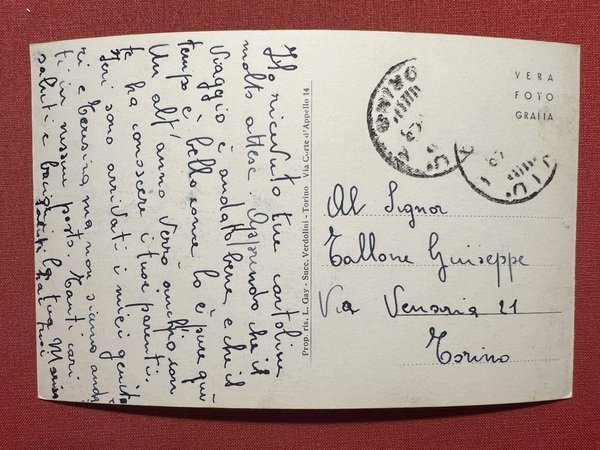 Ho ricevuto tue cartoline
molto attese. Apprendo che il
viaggio è andatto bene, e che il
tempo è bello come lo è pure qui
Un alt'anno verrò anch'io con
te ha conoscere i tuoi parenti.
Ieri sono arrivati i miei genito
ri e Teresina, ma non siamo anda
ti in nessun posto. Tanti cari
saluti e baci, la tua
Saluti
Prop. ris. L. Gay - Succ. Verdolini - Torino Via Corte d'Appello 14
VERA
FOTO
GRAFIA
TORINO
Al Signor
Tallone Guiseppe
Via Venaria 21
Torino